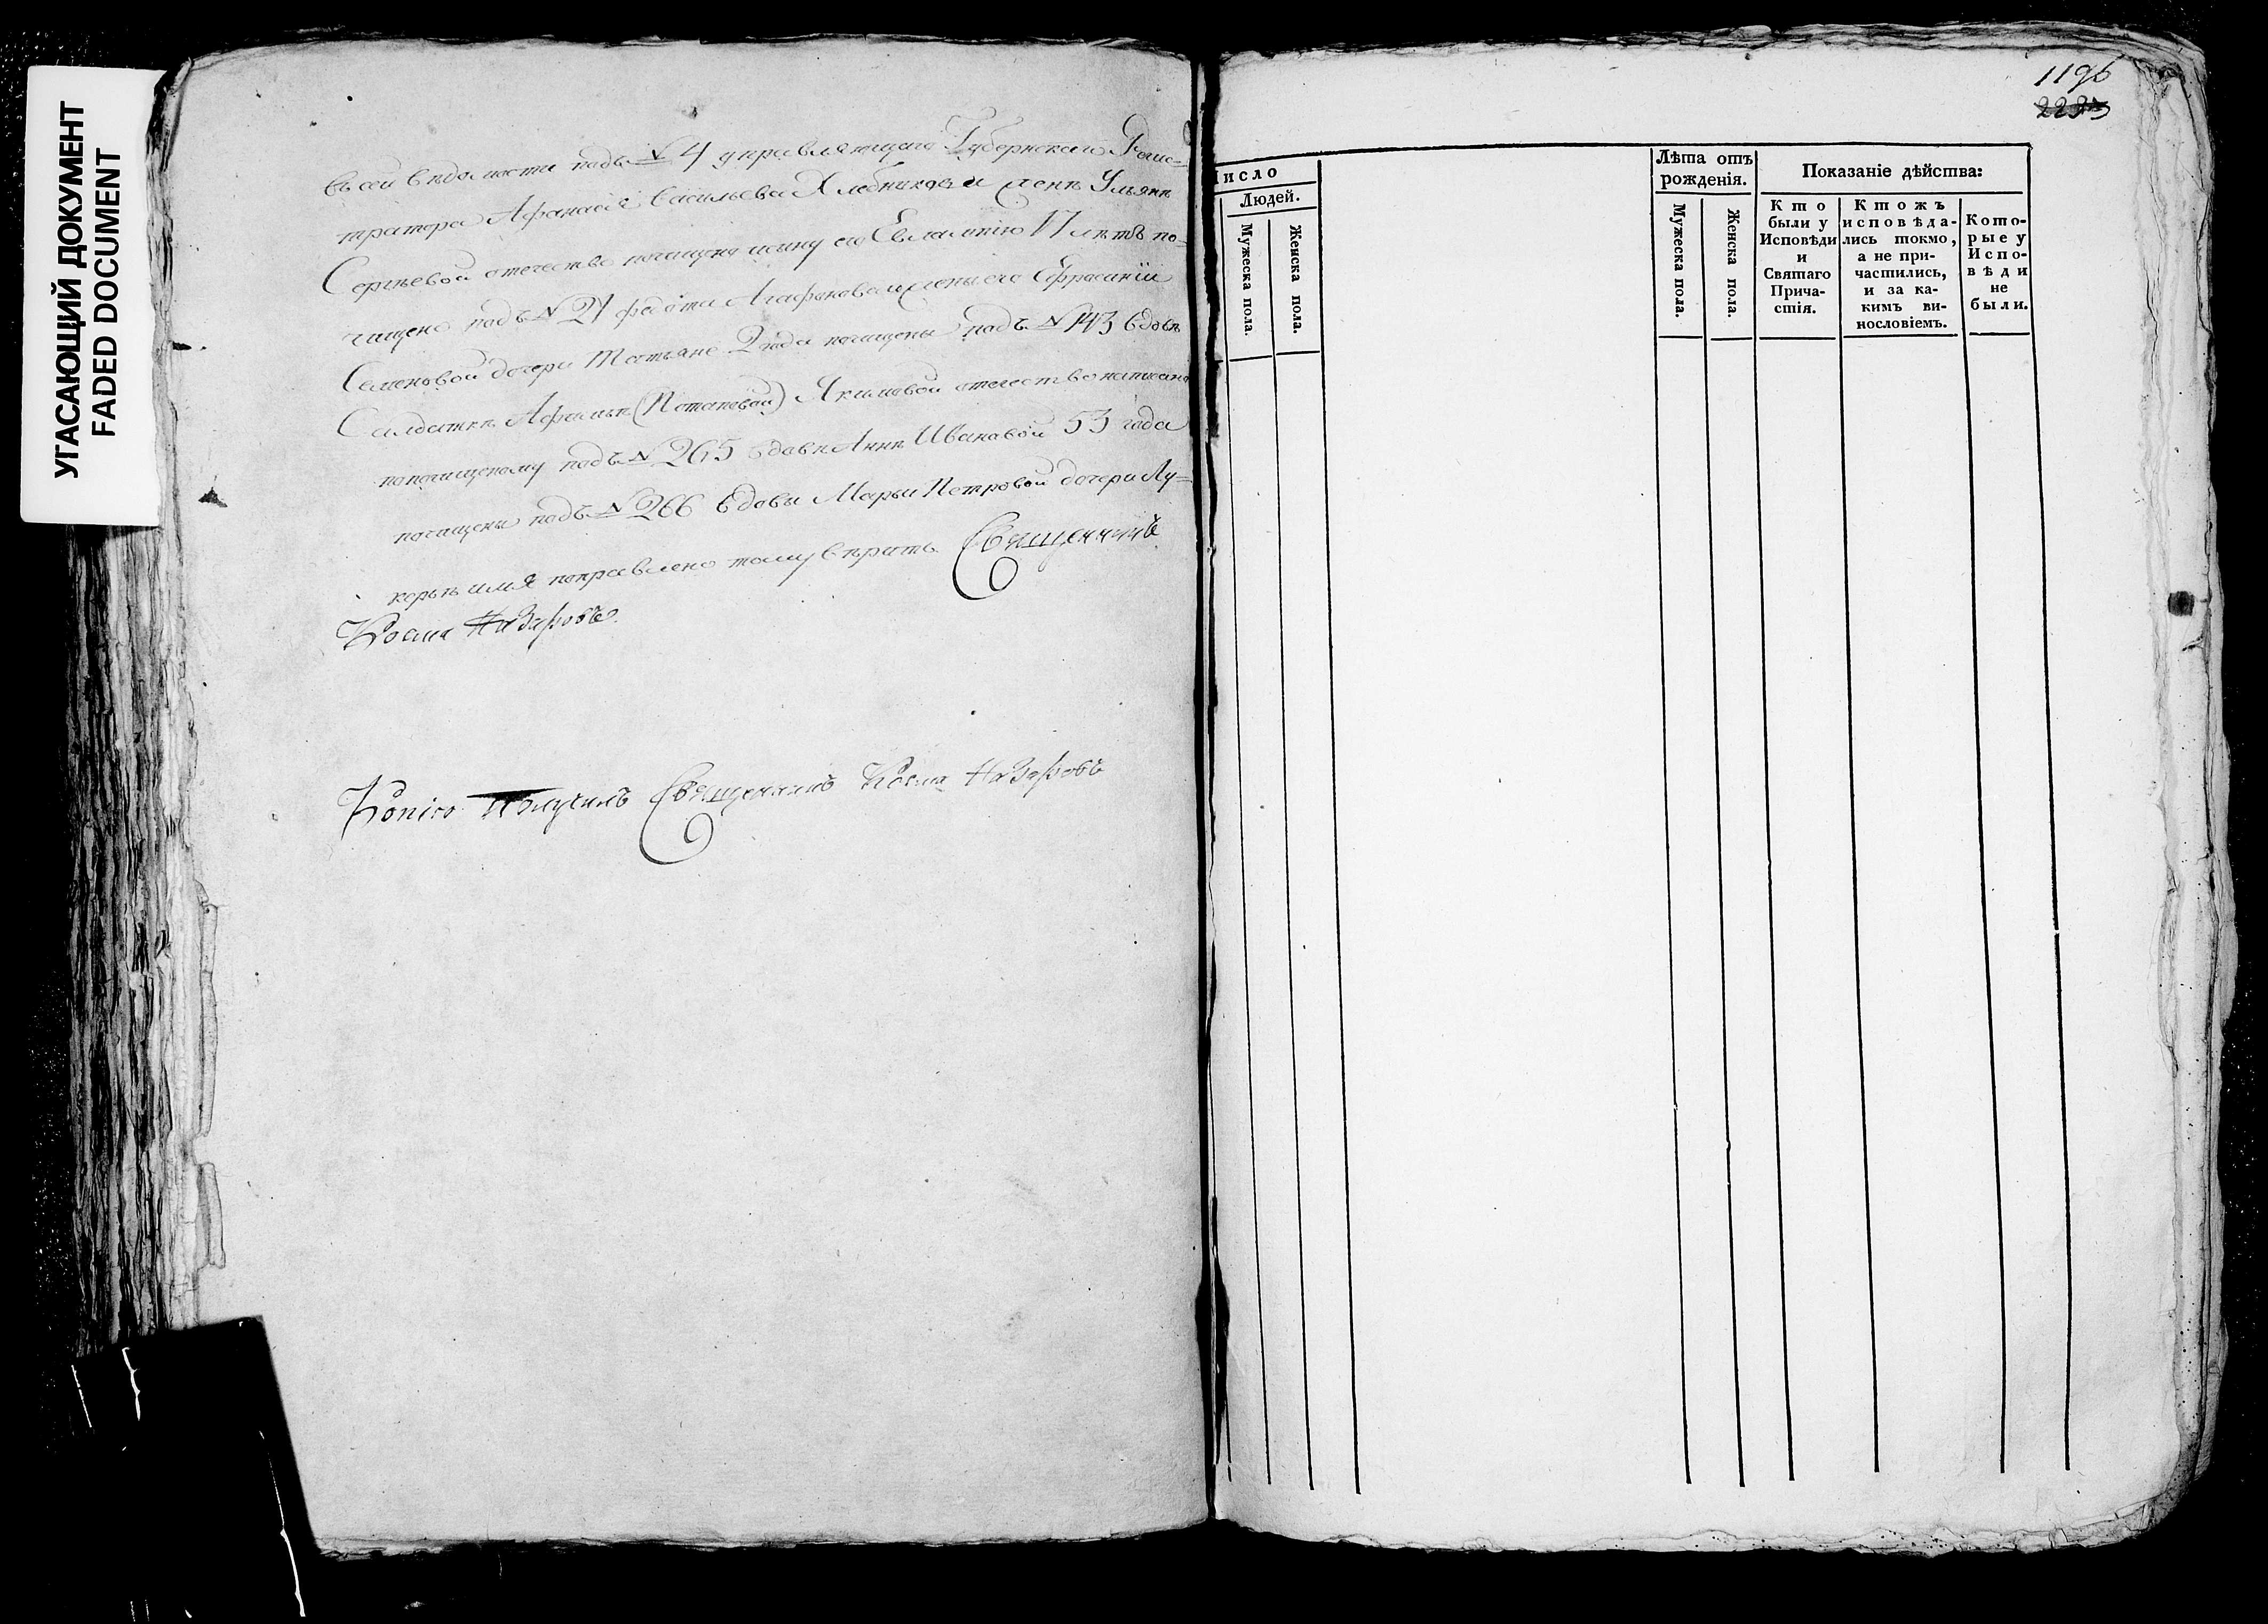 УГАСАЮЩИЙ ДОКУМЕНТ
FADED DOCUMENT
въ сей вѣдомости подъ № 4 управляющаго Губернскаго Реги=
тратора Афанасія Васильева Хлебникова женѣ Ульянѣ
Сергѣевой отечество почищено и сыну его Евлампію 17 лѣтъ по=
чищено подъ № 21 федота Агафонова и жены его Ефросиніи
Семеновой дочери Татьяне 2 года почищены подъ № 143 вдовѣ
Салдаткѣ Афимьѣ (Потаповой) Якимовой отечество написано
по почищеному подъ № 265 вдовѣ Аннѣ Ивановой 53 года
почищены подъ № 266 вдовы Марьи Петровой дочери Лу=
керьѣ имя поправлено тому вѣрить Священникъ
Косма Назаровъ
Копію получилъ Священникъ Косма Назаровъ
1196
Число
Людей.
Мужеска пола.
Женска пола.
Лѣта отъ
рожденія.
Мужеска пола.
Женска пола.
Показаніе дѣйства:
Кто
были у
Исповѣди
и
Святаго
Прича-
стія.
Ктожъ
исповѣда-
лись токмо,
а не при-
частились,
и за ка-
кимъ ви-
нословіемъ.
Кото-
рые у
Испо-
вѣди
не
были.